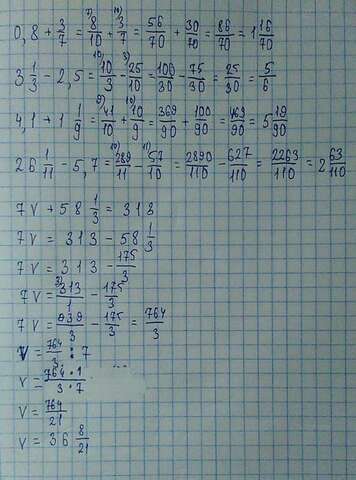 0,8 + 3/7 = 8/10 + 3/7 = 56/70 + 30/70 = 86/70 = 1 16/70
3 1/3 - 2,5 = 10/3 - 25/10 = 100/30 - 75/30 = 25/30 = 5/6
4,1 + 1 1/9 = 41/10 + 10/9 = 369/90 + 100/90 = 469/90 = 5 19/90
26 1/11 - 5,7 = 289/11 - 57/10 = 2890/110 - 627/110 = 2263/110 = 2 63/110
7v + 58 1/3 = 313
7v = 313 - 58 1/3
7v = 313 - 175/3
7v = 313/1 - 175/3
7v = 939/3 - 175/3 = 764/3
v = 764/3 : 7
v = 764·1/3·7
v = 764/21
v = 36 8/21